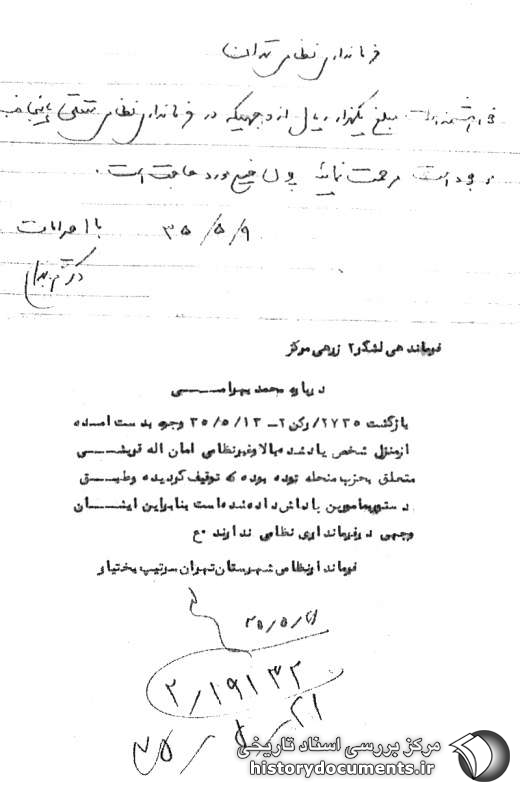 فرمانداری نظامی تهران
مبلغ یکهزار ریال از وجهیکه در فرمانداری نظامی متعلق باینجانب
موجود است مرحمت نمائید چون خیلی مورد حاجت است.
۳۵/۵/۹ با احترامات
دکتر بهرامی
فرماندهی لشگر۲ زرهی مرکز
درباره محمد بهرامـــــی
بازگشت ۲۷۳۵/رکن۲ـ ۳۵/۵/۱۳ وجوه بدست آمـده
ازمنزل شخص یادشده بالا وغیرنظامی امان اله قریشـــی
متعلق بحزب منحله توده بوده که توقیف گردیده وطبـــق
دستوربمامورین پاداش داده شده است بنابراین ایشـــان
وجهی درفرمانداری نظامی ندارند ع
فرماندارنظامی شهرستان تهران سرتیپ بختیار
۲/۱۹۱۳۲
مرکز بررسی اسناد تاریخی
historydocuments.ir